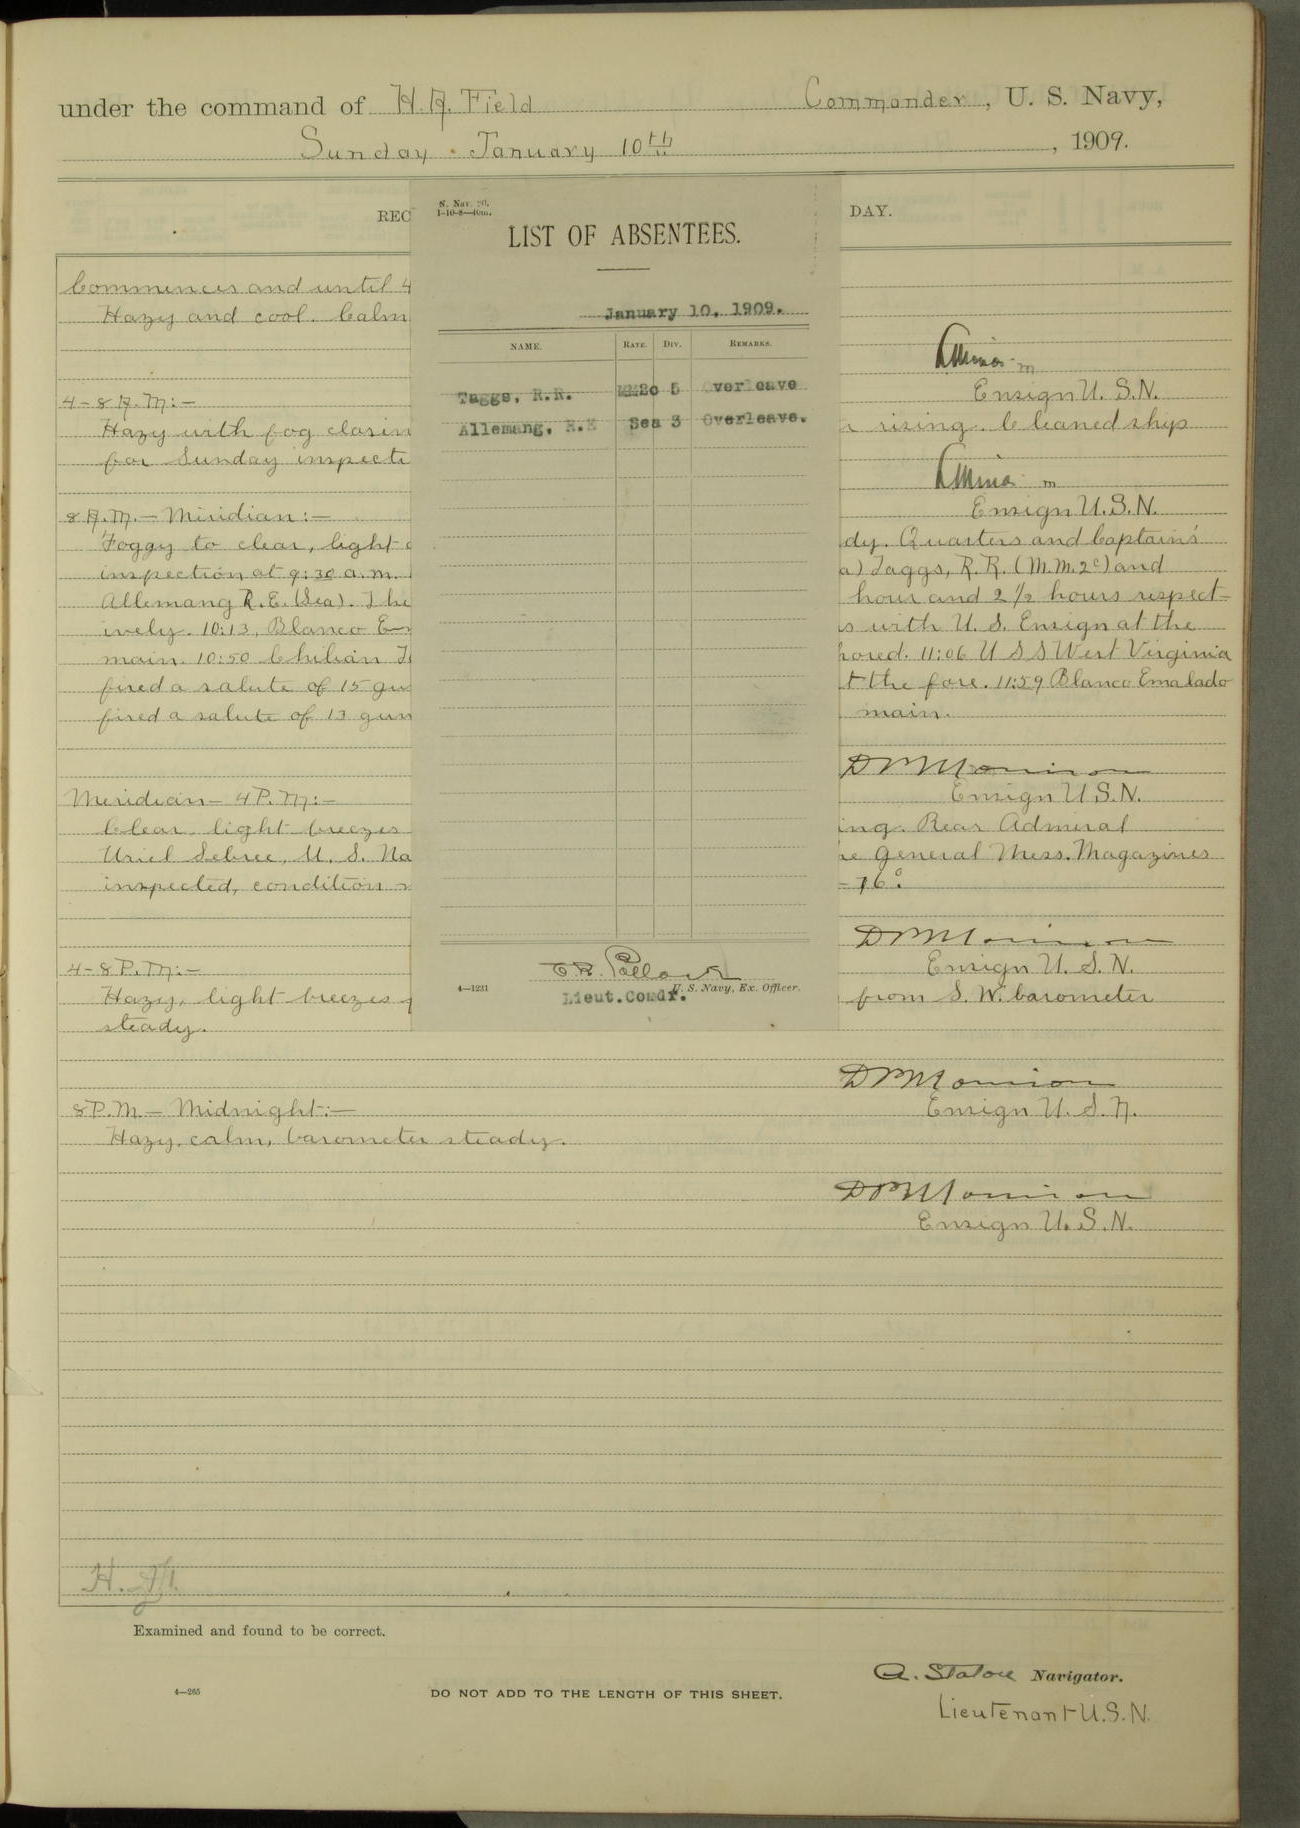 under the command of H. A. Field Commander, U. S. Navy,
Sunday January 10th, 1909.
REC
DAY.
N. Nav. 20.
LIST OF ABSENTEES.
January 10, 1909.
NAME. RATE. DIV. REMARKS.
Taggs, R.R. MM2c 5 Overleave
Allemang, R.E Sea 3 Overleave.
4—1231
U. S. Navy, Ex. Officer.
Lieut.Comdr.
Commences and until 4
Hazy and cool. Calm
Ensign U. S. N.
4-8 A.M:-
Hazy with fog closin
rising. Cleaned ship
for Sunday inspecti
Ensign U.S.N.
8 A.M. - Meridian:-
Foggy to clear, light
dy. Quarters and Captain's
inspection at 9:30 a.m.
a) Taggs, R. R. (M.M. 2c) and
Allemang R. E. (Sea). The
hour and 2 1/2 hours respect-
ively. 10:13, Blanco En
s with U. S. Ensign at the
main. 10:50 Chilian
hored. 11:06 U S S West Virginia
fired a salute of 15 gu
t the fore. 11:59 Blanco Emalado
fired a salute of 13 gun
main.
D M Morrison
Ensign U.S.N.
Meridian - 4 P.M:-
Clear light breezes
ing. Rear Admiral
Uriel Sebree, U. S. Na
he General Mess. Magazines
inspected, condition
- 76°
D M Morrison
Ensign U. S. N.
4-8 P.M:-
Hazy, light breezes
from S. W. barometer
steady.
D M Morrison
Ensign U. S. N.
8 P.M - Midnight:-
Hazy, calm, barometer steady.
D M Morrison
Ensign U. S. N.
Examined and found to be correct.
Navigator.
Lieutenant U.S.N.
4—265
DO NOT ADD TO THE LENGTH OF THIS SHEET.